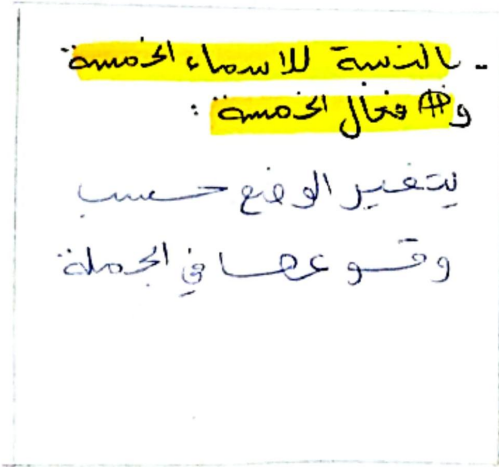 - بالنسبة للاسماء الخمسة
والافعال الخمسة :
يتغير الوضع حسب
وقوعها في الجملة